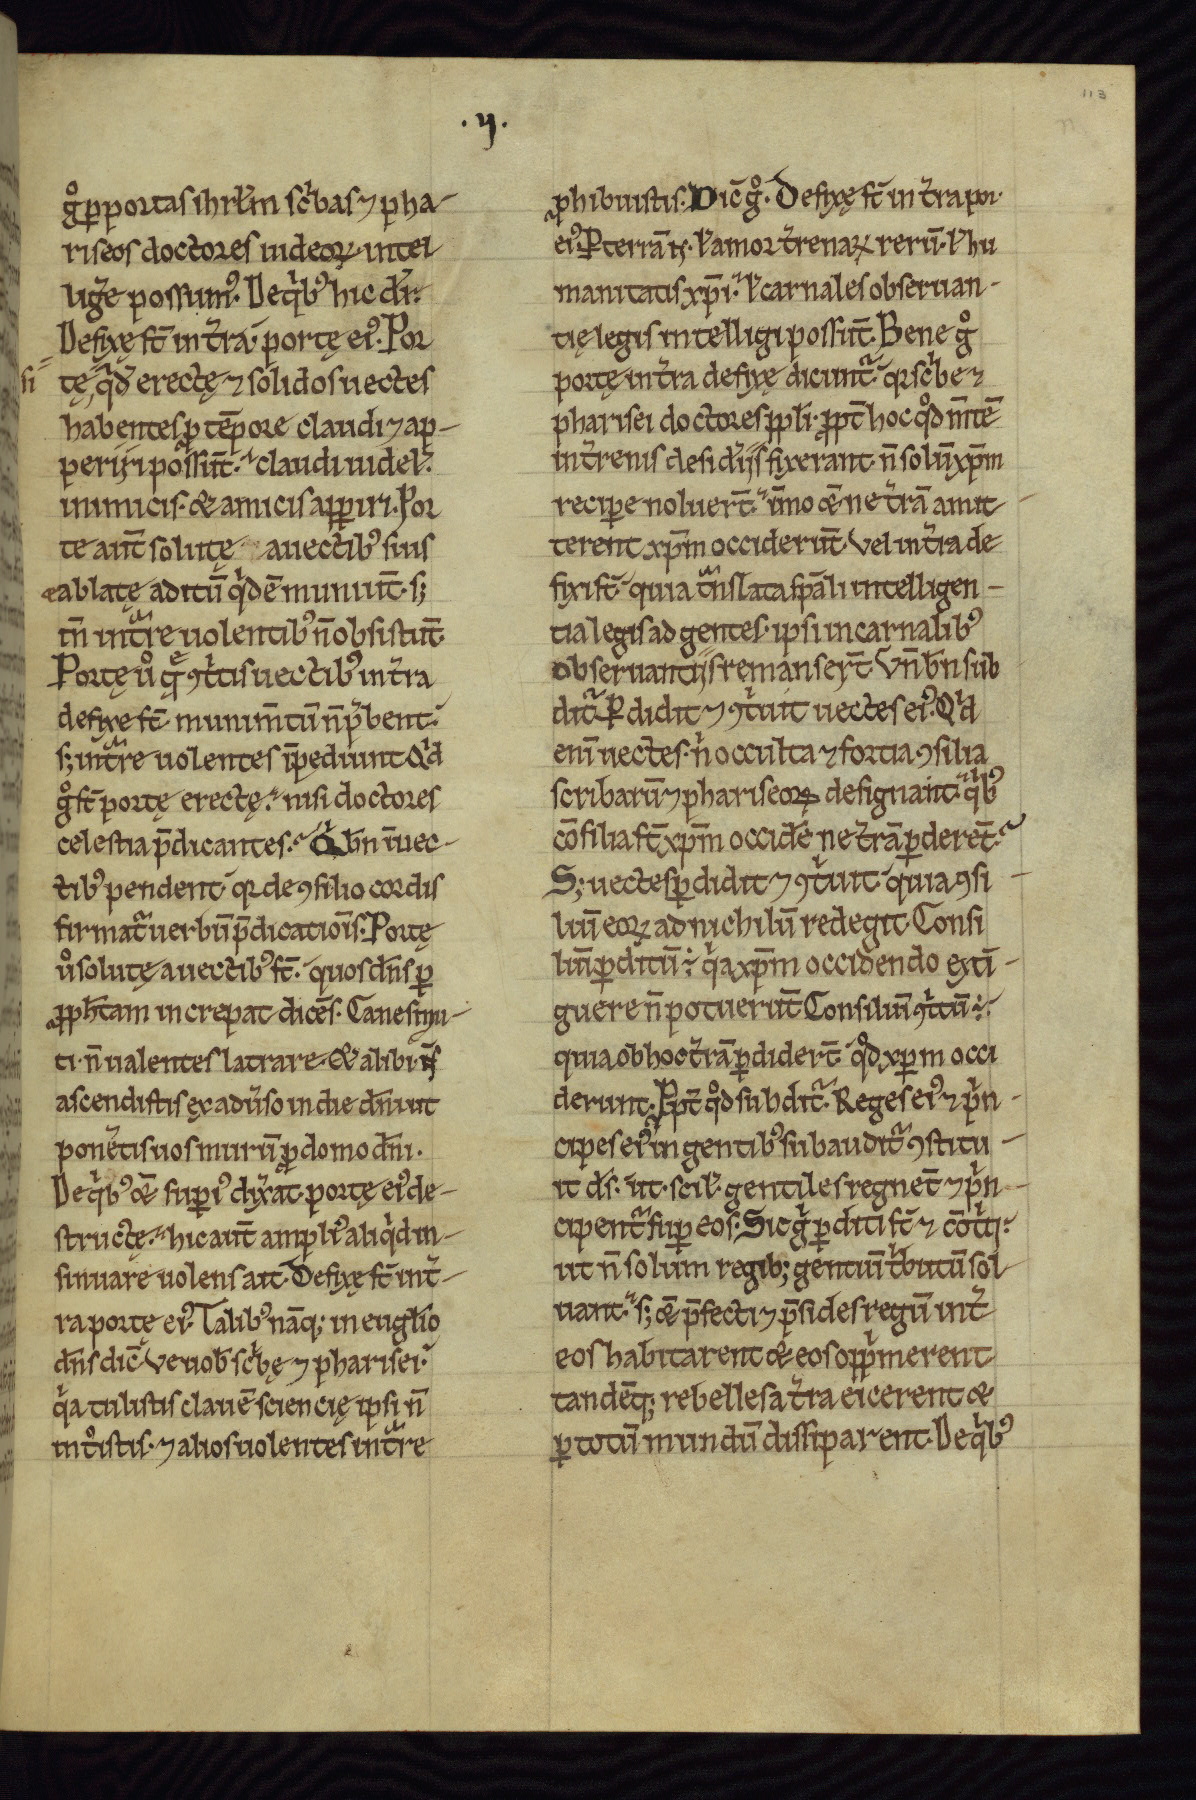 113
·y·
g̊ p portas ihrl̄m sc̍bas ⁊ pha-
riseos doctores iudeoꝝ intel
lig̃e possum᷒. De q̍b᷒ hic dr̄.
Defixę st̄ in t̃ra portę ei᷒. Por
si tę q̍dē erectę ⁊ solidos uectes
habentes ꝓ tēpore claudi ⁊ ap-
periri possunt̄. claudi uidel᷒.
inimicis. & amicis apꝑiri. Por
te aut̄ solutę a uectib᷒ suis
ablatę aditū q̍dē muniunt̄. s;
tn̄ int̃re uolentib᷒ n̄ obsistunt̄.
Portę ů q̨ ꝯt̍tis uectib᷒ in t̃ra
defixe st̄ munimt̄ū n̄ p̍bent.
s; int̃re uolentes īpediunt. Q̍d
g̊ st̄ portę erectę. nisi doctores
celestia p̄dicantes. Q̍ bn̄ ī uec-
tib᷒ pendent. qꝛ de ꝯsilio cordis
firmat̃ uerbū p̄dicationis. Portę
ů solutę a uectib᷒ st̄. quos dn̄s ꝑ
ꝓph̄tam increpat dicēs. Canes mu-
ti. n̄ ualentes latrare. & alibi. n̄
ascendistis ex adũso in die dn̄i ut
poneretis uos murū ꝓ domo dn̄i.
De q̍b᷒ & supi᷒ dixat. portę ei᷒ de-
structę. hic aut̄ ampli᷒ aliq̍d in-
sinuare uolens ait. Defixę st̄ in t̃-
ra portę ei᷒. Talib᷒ nāq; in euglīo
dn̄s dic̄. Ve uob̄ sc̍bę ⁊ pharisei.
q̍a tulistis clauē sciencię ipsi n̄
int̊istis. ⁊ alios uolentes int̃re
ꝓhibuistis. Dic̄ g̊. Defixę st̄ in t̃ra por
ei᷒. Per terrā n̄. ł amor t̃renaꝝ rerū. ł hu
manitatis xp̄i. ł carnales obseruan-
tię legis intelligi possunt̄. Bene g̊
portę in t̃ra defixę dicunt̃. qꝛ sc̍be ⁊
pharisei doctores ppl̄i. ꝓpt̄ hoc q̊d m̄tē
in t̃renis desid̃iis fixerant. n̄ solū xp̄m
recipe noluert̄. īmo & ne t̃rā amit
terent xp̄m occiderunt̄. Vel in t̃ra de
fixi st̄ quia t̃nslata sp̄ali intelligen-
tia legis ad gentes. ipsi in carnalib᷒
obseruantiis remanserт̄. Vn̄ bn̄ sub
dit̃. Perdidit ⁊ ꝯt̍uit uectes ei᷒. Q̍d
enī uectes. n̍ occulta ⁊ fortia ꝯsilia
scribarū ⁊ phariseoꝝ designant. q̍b᷒
cōsilia st̄ xp̄m occidē ne t̃rā ꝑderēt̄.
S; uectes ꝑdidit ⁊ ꝯt̍uit. quia ꝯsi
liū eoꝝ ad nichilū redegit. Consi
liū ꝑditū ÷. q̍a xp̄m occidendo extī-
guere n̄ potuerunt̄. Consiliū ꝯt̍tū ÷.
quia ob hoc t̃rā ꝑdidert̄. q̊d xp̄m occi
derunt. Ꝓpt̄ q̊d subdit̃. Reges ei᷒ ⁊ p̍n-
cipes ei᷒ in gentib᷒ subaudit̃ ꝯstitu-
it ds̄. ut. scil᷒. gentiles regnet̄ ⁊ p̍n-
cipent̃ sup eos. Sic g̊ ꝑditi st̄ ⁊ cōt̍ti.
ut n̄ solum regib; gentiū t̍butū sol
uant. s; & p̄fecti ⁊ p̄sides regū int̃
eos habitarent & eos opp̍merent
tandēq; rebelles a t̃ra eicerent &
ꝑ totū mundū dissiparent. De q̍b᷒